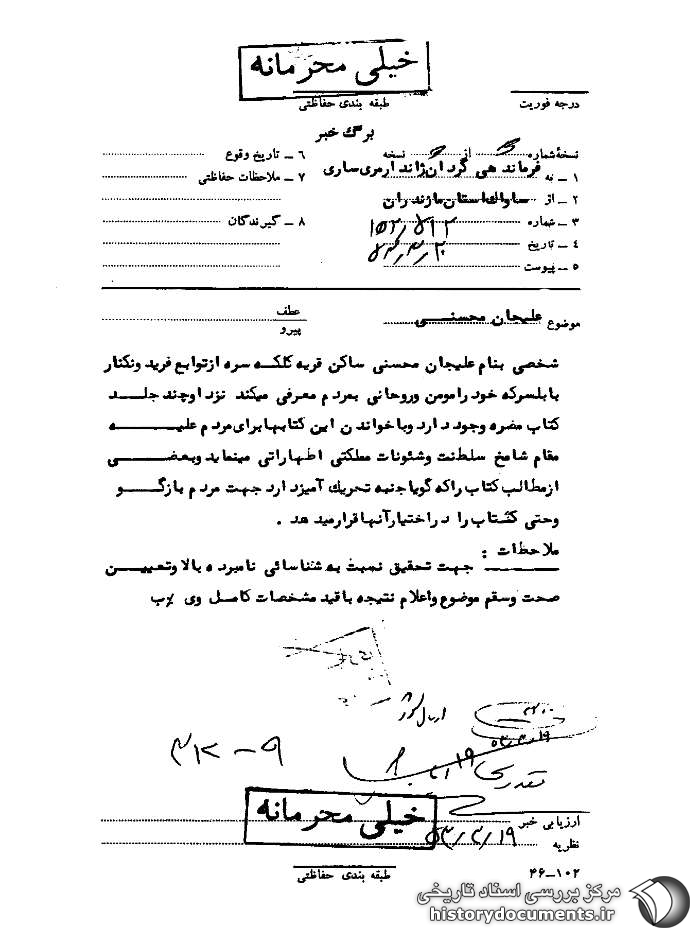 خیلی محرمانه
درجه فوریت
طبقه بندی حفاظتی
برگ خبر
نسخه شماره از نسخه
۱ ـ به فرماندهی گردان ژاندارمری ساری
۲ ـ از ساواک استان مازندران
۳ ـ شماره
۴ ـ تاریخ
۵ ـ پیوست
۶ ـ تاریخ وقوع
۷ ـ ملاحظات حفاظتی
۸ ـ گیرندگان
موضوع علیجان محسنی
عطف
پیرو
شخصی بنام علیجان محسنی ساکن قریه کلکه سره ازتوابع فرید ونکنار
بابلسرکه خود رامومن وروحانی بمردم معرفی میکند نزد اوچند جلد
کتاب مضره وجود دارد وباخواندن این کتابها برای مردم علیه
مقام شامخ سلطنت وشئونات مملکتی اظهاراتی مینماید وبعضی
ازمطالب کتاب راکه گویا جنبه تحریک آمیزدارد جهت مردم بازگو
وحتی کشتاب را دراختیارآنها قرارمیدهد .
ملاحظات :
جهت تحقیق نسبت به شناسائی نامبرده بالا وتعیین
صحت وسقم موضوع واعلام نتیجه باقید مشخصات کامل وی
۹ – ۳۱۲
خیلی محرمانه
ارزیابی خبر
نظریه ۵۳/۳/۱۹
طبقه بندی حفاظتی
۴۶ــ۱۰۲
مرکز بررسی اسناد تاریخی
historydocuments.ir